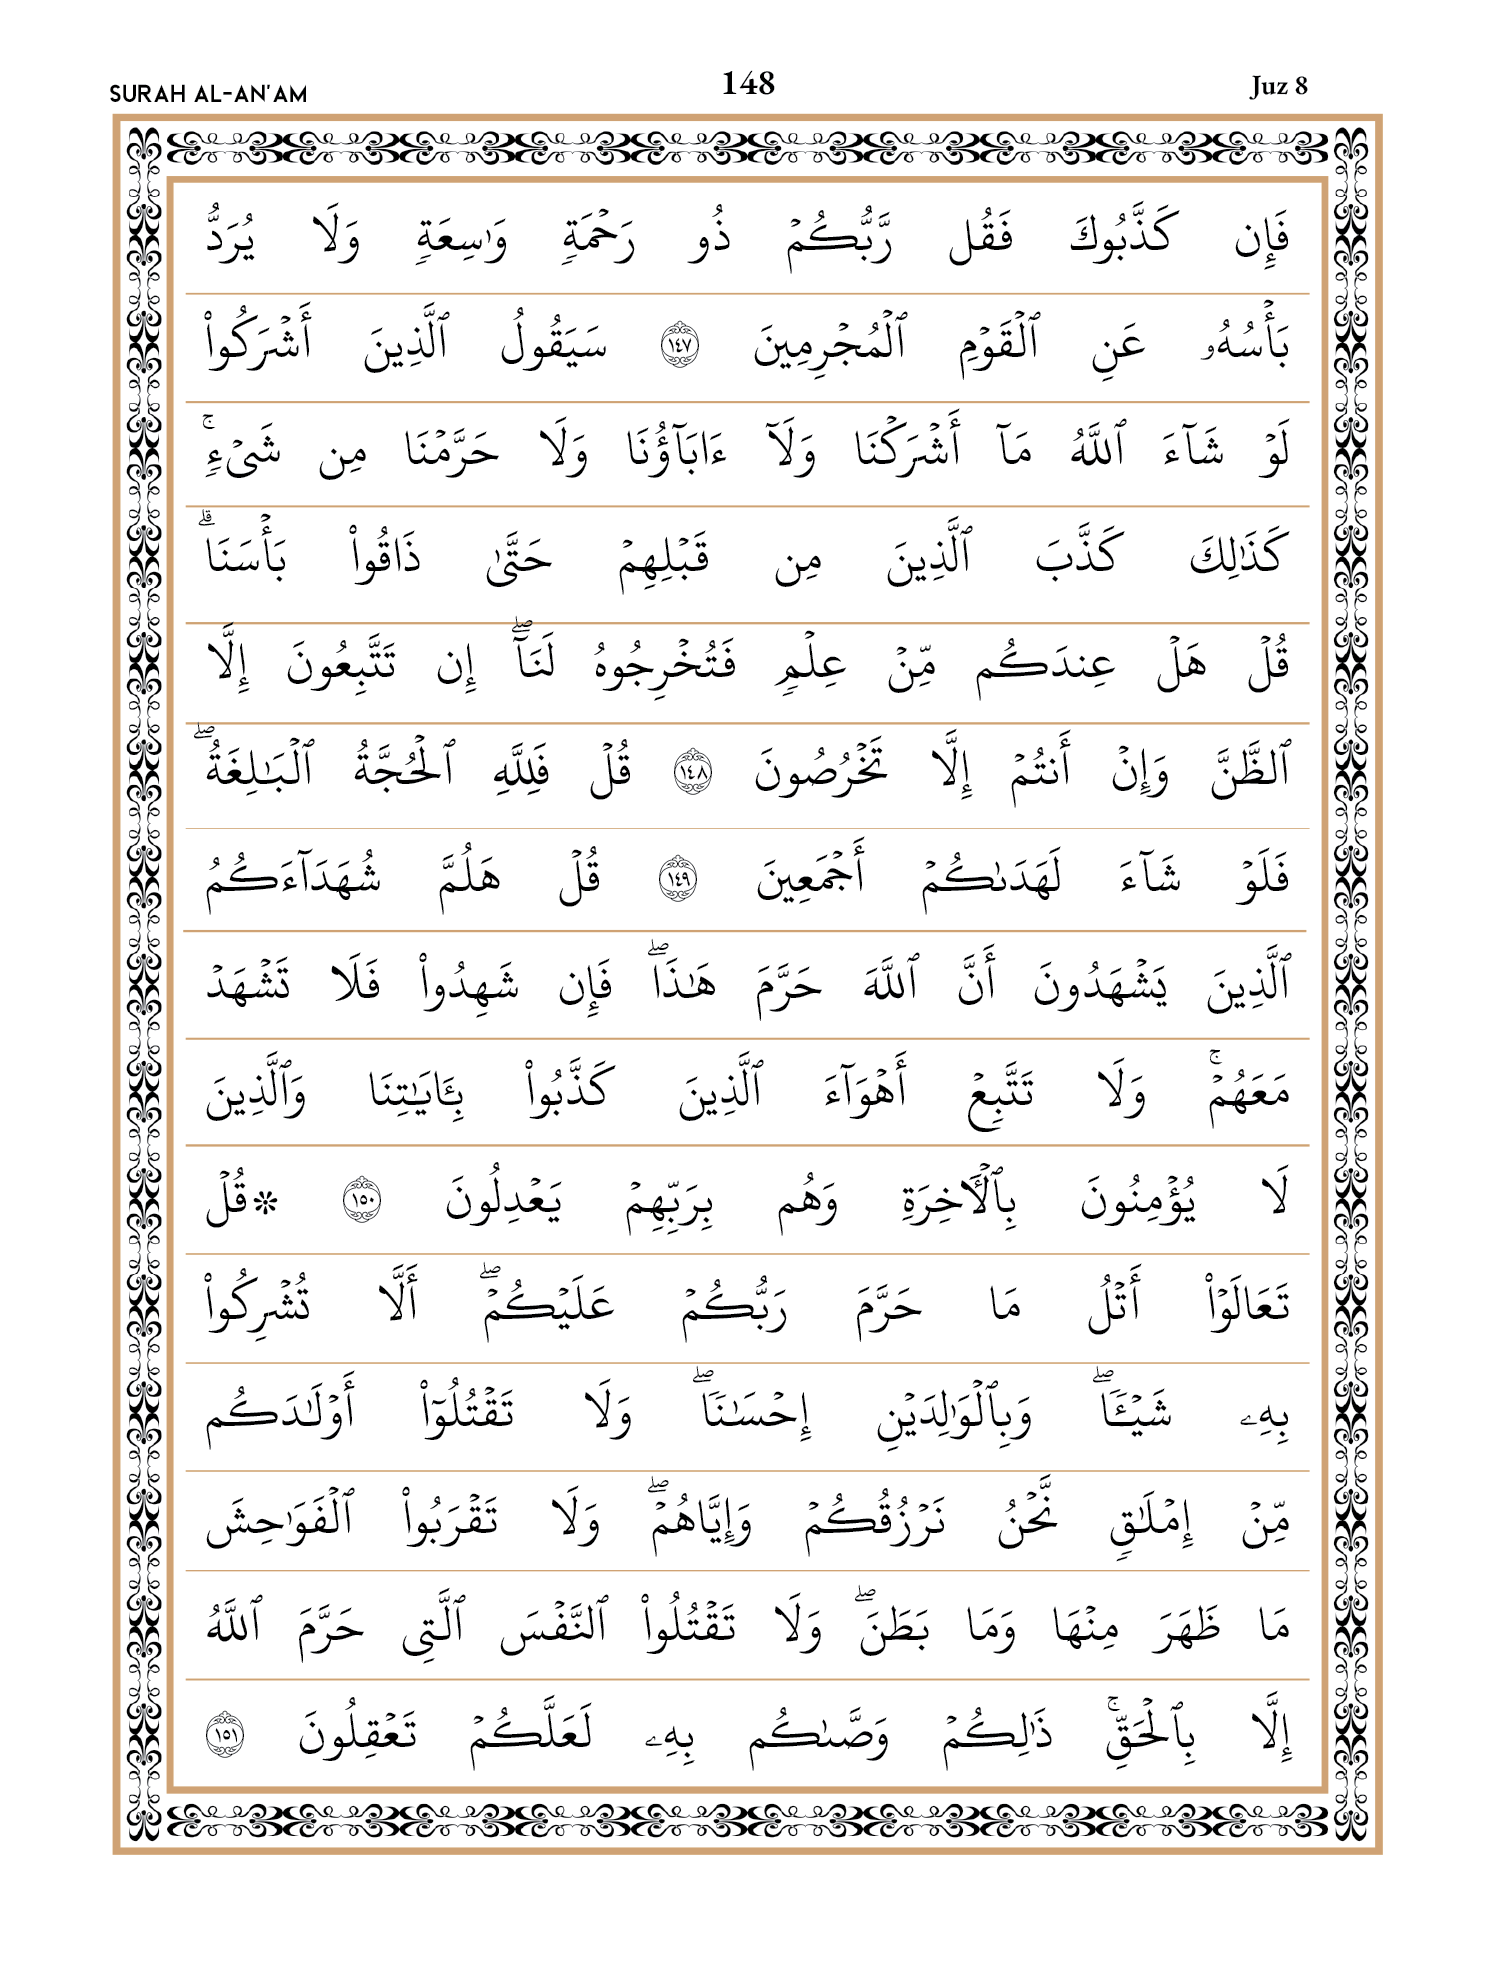 SURAH AL-AN'AM 148 Juz 8
فَإِن كَذَّبُوكَ فَقُل رَّبُّكُمۡ ذُو رَحۡمَةٖ وَٰسِعَةٖ وَلَا يُرَدُّ
بَأۡسُهُۥ عَنِ ٱلۡقَوۡمِ ٱلۡمُجۡرِمِينَ ١٤٧ سَيَقُولُ ٱلَّذِينَ أَشۡرَكُواْ
لَوۡ شَآءَ ٱللَّهُ مَآ أَشۡرَكۡنَا وَلَآ ءَابَآؤُنَا وَلَا حَرَّمۡنَا مِن شَيۡءٖۚ
كَذَٰلِكَ كَذَّبَ ٱلَّذِينَ مِن قَبۡلِهِمۡ حَتَّىٰ ذَاقُواْ بَأۡسَنَاۗ
قُلۡ هَلۡ عِندَكُم مِّنۡ عِلۡمٖ فَتُخۡرِجُوهُ لَنَآۖ إِن تَتَّبِعُونَ إِلَّا
ٱلظَّنَّ وَإِنۡ أَنتُمۡ إِلَّا تَخۡرُصُونَ ١٤٨ قُلۡ فَلِلَّهِ ٱلۡحُجَّةُ ٱلۡبَٰلِغَةُۖ
فَلَوۡ شَآءَ لَهَدَىٰكُمۡ أَجۡمَعِينَ ١٤٩ قُلۡ هَلُمَّ شُهَدَآءَكُمُ
ٱلَّذِينَ يَشۡهَدُونَ أَنَّ ٱللَّهَ حَرَّمَ هَٰذَاۖ فَإِن شَهِدُواْ فَلَا تَشۡهَدۡ
مَعَهُمۡۚ وَلَا تَتَّبِعۡ أَهۡوَآءَ ٱلَّذِينَ كَذَّبُواْ بِـَٔايَٰتِنَا وَٱلَّذِينَ
لَا يُؤۡمِنُونَ بِٱلۡأٓخِرَةِ وَهُم بِرَبِّهِمۡ يَعۡدِلُونَ ١٥٠ ۞قُلۡ
تَعَالَوۡاْ أَتۡلُ مَا حَرَّمَ رَبُّكُمۡ عَلَيۡكُمۡۖ أَلَّا تُشۡرِكُواْ
بِهِۦ شَيۡـٔٗاۖ وَبِٱلۡوَٰلِدَيۡنِ إِحۡسَٰنٗاۖ وَلَا تَقۡتُلُوٓاْ أَوۡلَٰدَكُم
مِّنۡ إِمۡلَٰقٖ نَّحۡنُ نَرۡزُقُكُمۡ وَإِيَّاهُمۡۖ وَلَا تَقۡرَبُواْ ٱلۡفَوَٰحِشَ
مَا ظَهَرَ مِنۡهَا وَمَا بَطَنَۖ وَلَا تَقۡتُلُواْ ٱلنَّفۡسَ ٱلَّتِي حَرَّمَ ٱللَّهُ
إِلَّا بِٱلۡحَقِّۚ ذَٰلِكُمۡ وَصَّىٰكُم بِهِۦ لَعَلَّكُمۡ تَعۡقِلُونَ ١٥١